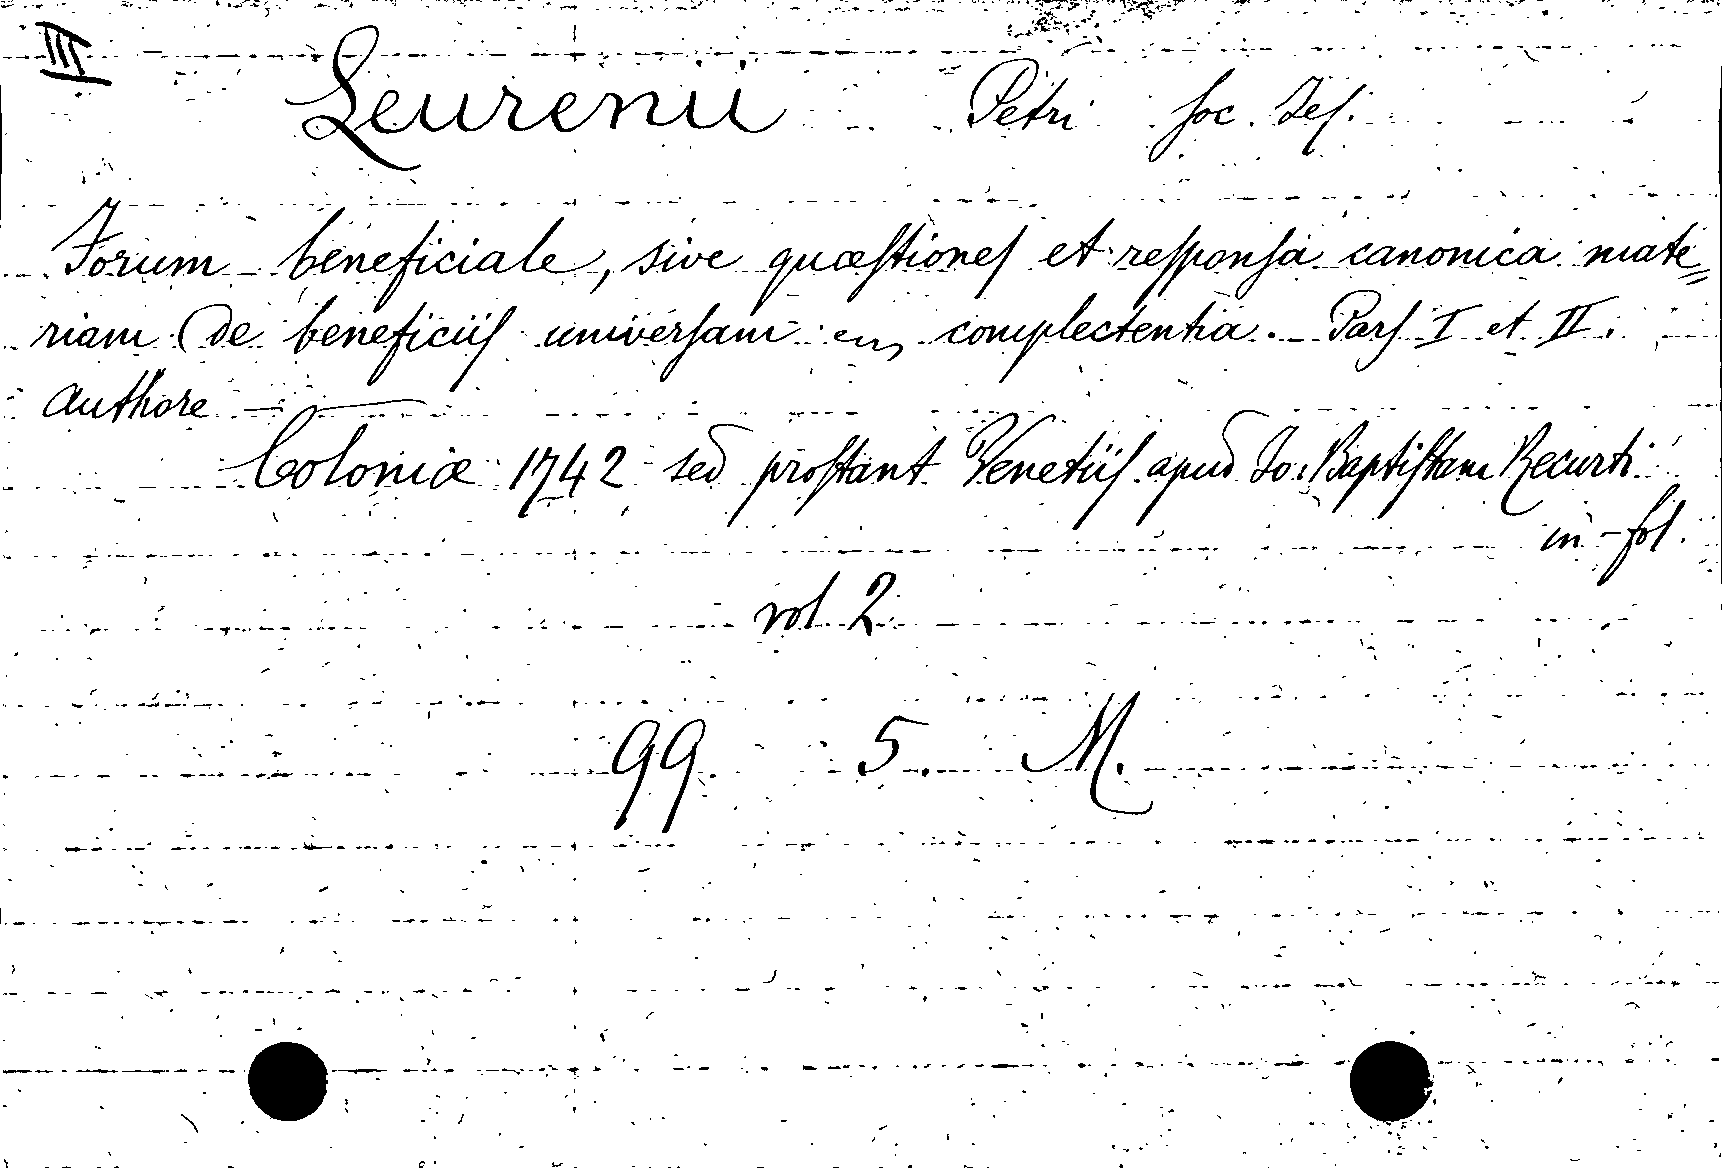 III
Leurenii Petri Soc. Jes.
Forum beneficiale, sive quæstiones et responsa canonica mate=
riam de beneficiis universam complectentia. Pars I et II.
Authore —
Coloniæ 1742 sed prostant Venetiis apud Jo: Baptistam Recurti
in-fol.
vol 2
99 5 M.